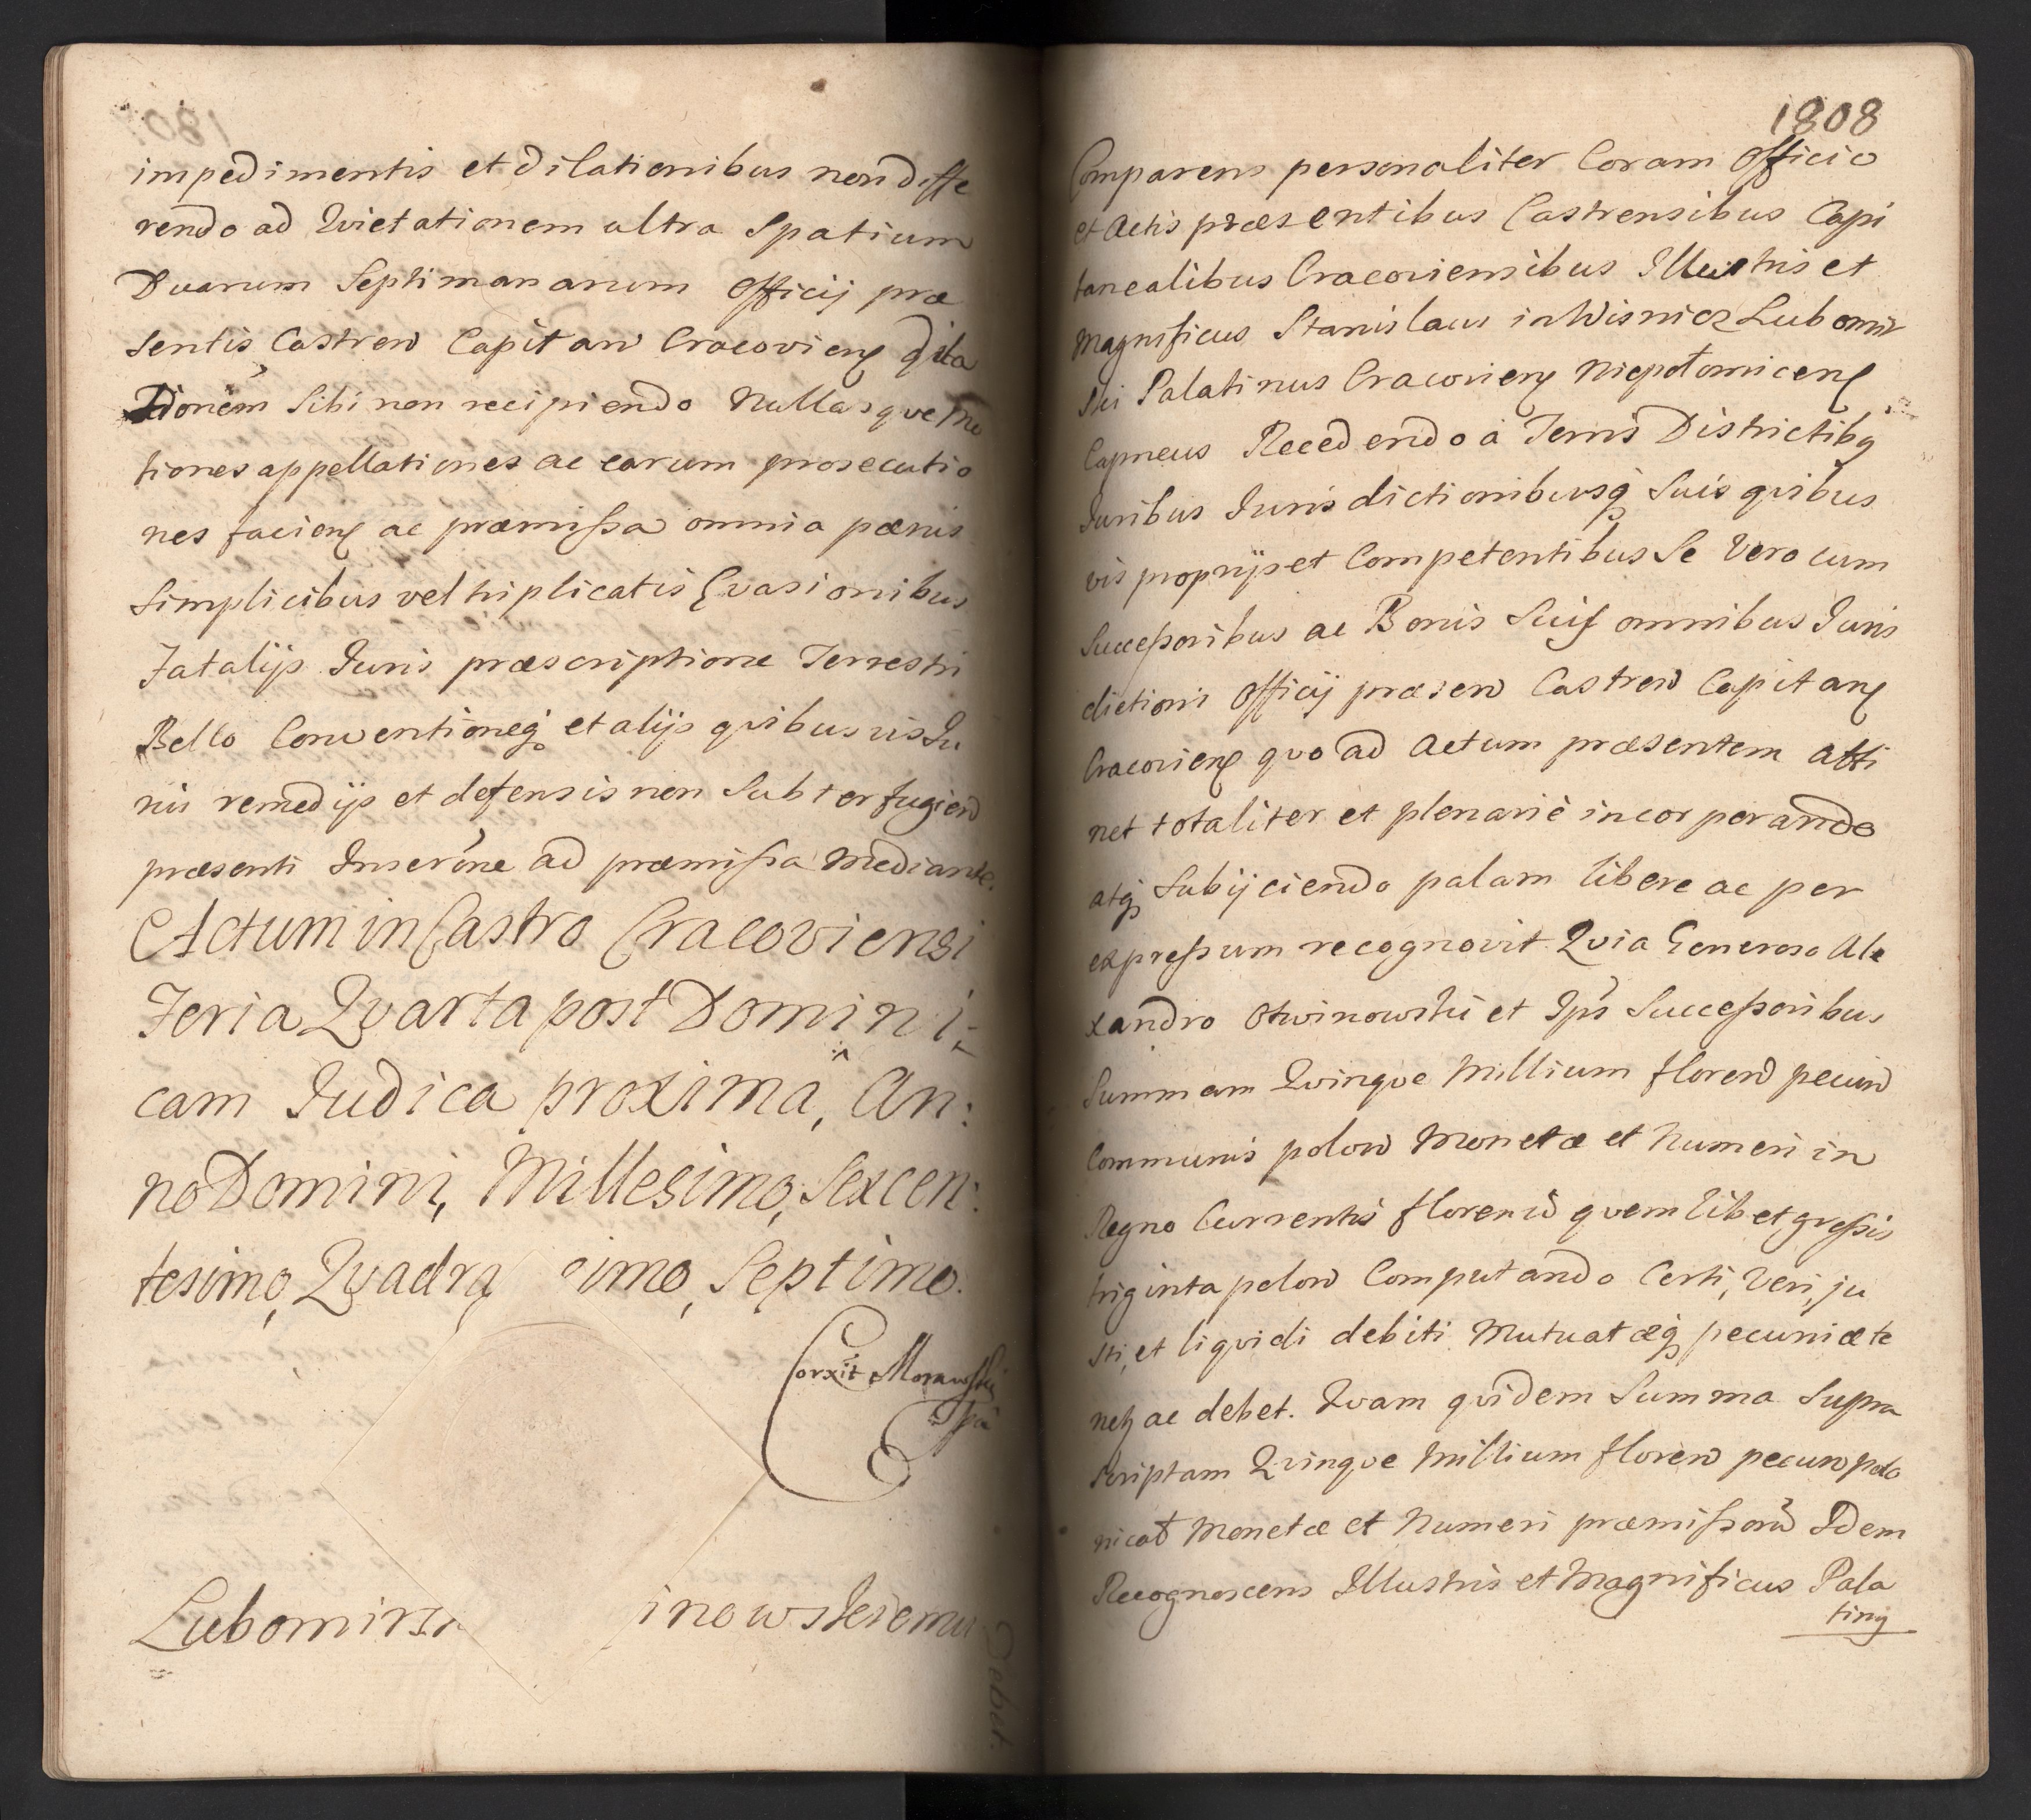 impedimentis et dilationibus non diffe
rendo ad Quietationem ultra Spatium
Duarum Septimanarum Officij præ
sentis Castren Capitan Cracovien dila
tionem Sibi non recipiendo Nullasque mo
tiones appellationes ac earum prosecutio
nes facien ac præmissa omnia pœnis
Simplicibus vel triplicatis Evasionibus
Fatalijs Juris præscriptione Terrestri
Bello Conventioneq et alijs quibusvis Ju
ris remedijs et defensis non Subterfugien
præsenti Inscrōne ad præmissa Mediante.
Actum in Castro Cracoviensi
Feria Quarta post Domini-
cam Judica proxima, An:
no Domini, Millesimo, Sexcen:
tesimo, Quadra simo, Septimo.
Corxit Morawski
Lubomirs inowskiemu
Debet.
1808
Comparens personaliter Coram Officio
et Actis præsentibus Castrensibus Capi
tanealibus Cracoviensibus Illustris et
Magnificus Stanislaus in Wisnicz Lubomir
ski Palatinus Cracovien Niepołomicen
Capneus Recedendo à Terris Districtibq
Juribus Jurisdictionibusq Suis quibus
vis proprijs et Competentibus Se Vero cum
Successoribus ac Bonis Suis omnibus Juris
dictioni Officij præsen Castren Capitan
Cracovien quo ad Actum præsentem atti
net totaliter et plenariè incorporando
atq Subijciendo palam libere ac per
expressum recognovit Quia Generoso Ale
xandro Otwinowski et Ips Successoribus
Summam Quinque Millium floren pecun
Communis polon Monetæ et Numeri in
Regno Currentis floren quemlibet grossis
triginta polon Computando Certi, Veri, ju
sti, et liquidi debiti Mutuatæq pecuniæ te
netz ac debet. Quam quidem Summa Supra
scriptam Quinque Millium floren pecun polo
nical Monetæ et Numeri præmissorū Idem
Recognoscens Illustris et Magnificus Pala
tinq